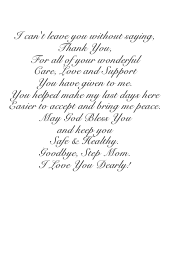 I can't leave you without saying,
Thank You,
For all of your wonderful
Care, Love and Support
You have given to me.
You helped make my last days here
Easier to accept and bring me peace.
May God Bless You
and keep you
Safe & Healthy.
Goodbye, Step Mom.
I Love You Dearly!